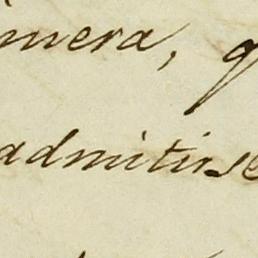 imera, q
admitirse